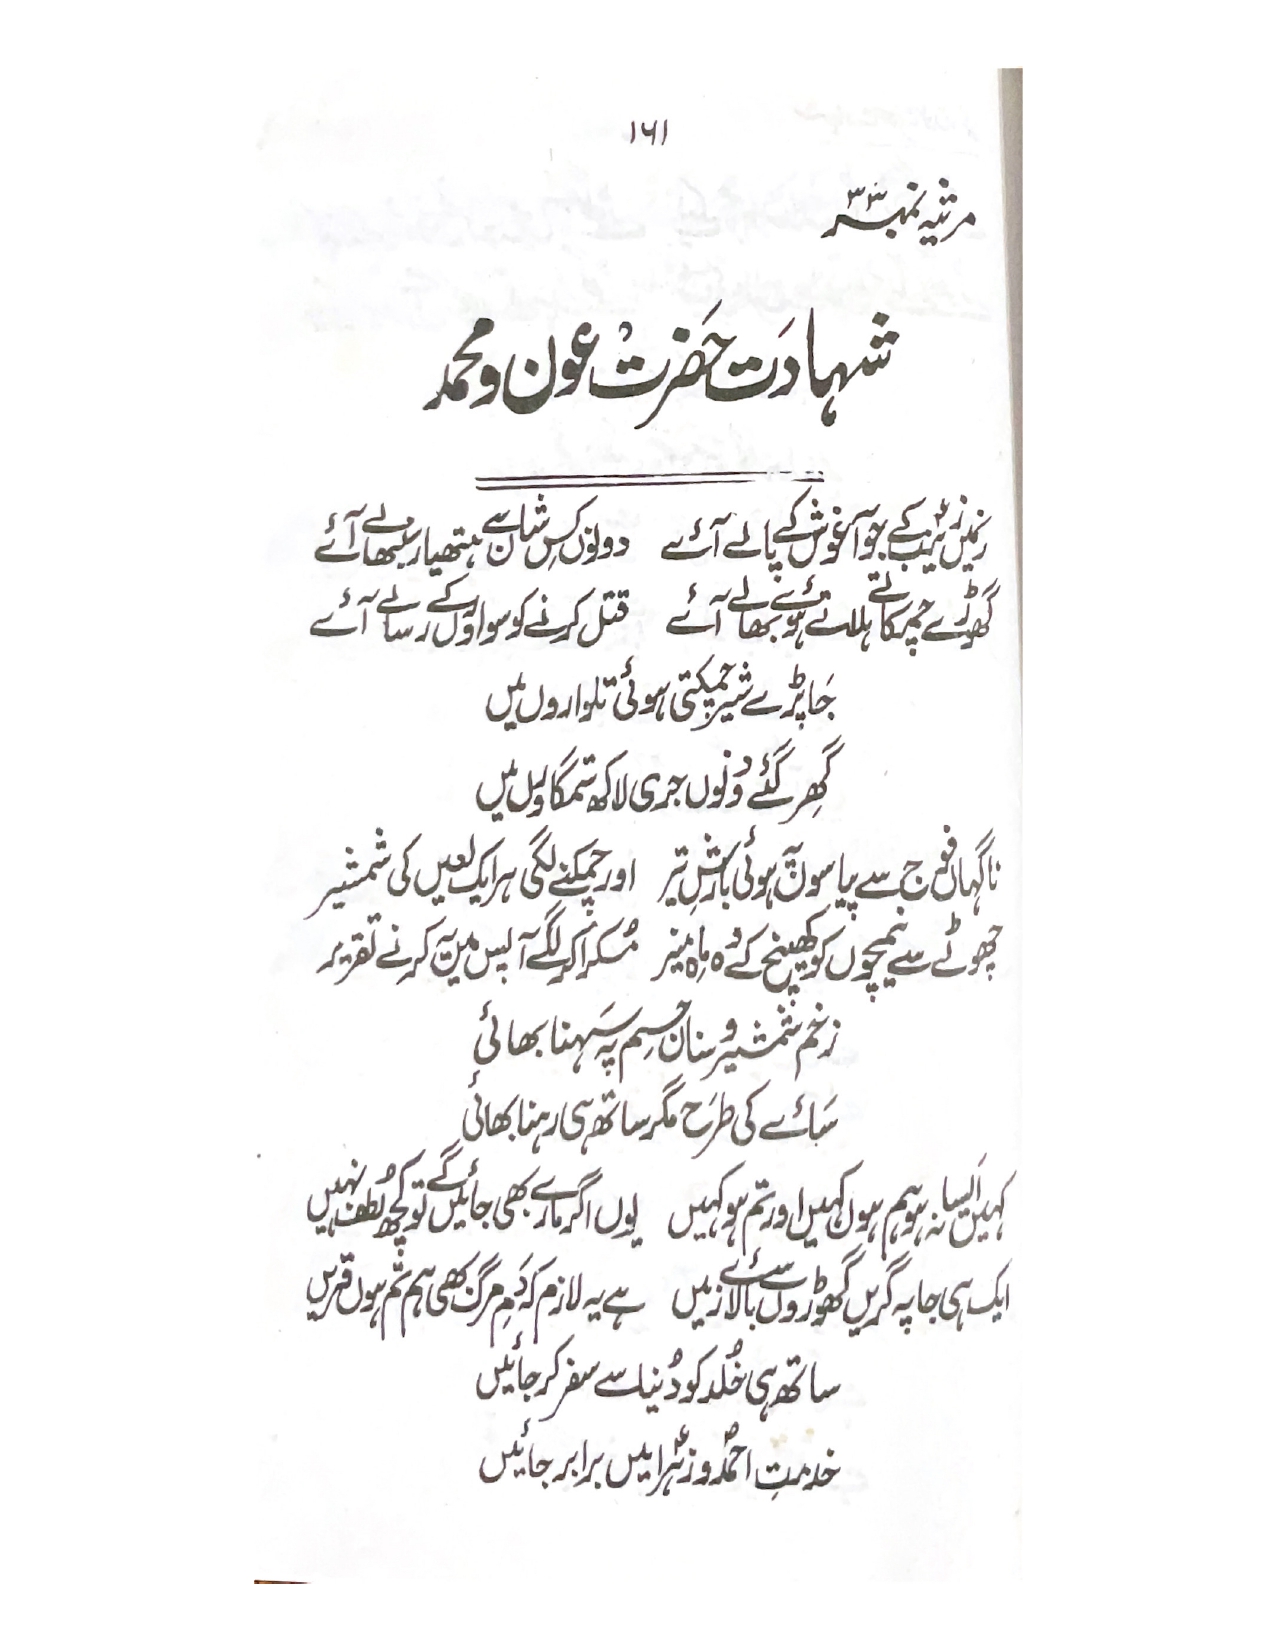 ۱۶۱
مرثیہ نمبر ۳۳
شہادت حضرت عون و محمد
رن میں زینبؑ کے جو آغوش کے پالے آئے دونوں کس شان سے ہتھیار سنبھالے آئے
گھوڑے چمکاتے ہلاتے ہوئے بھالے آئے قتل کرنے کو سواروں کے رسالے آئے
جا پڑے شیر چمکتی ہوئی تلواروں میں
گھِر گئے دونوں جری لاکھ ستمگاروں میں
ناگہاں فوج سے پیاسوں پہ ہوئی بارشِ تیر اور چمکنے لگی ہر ایک لعیں کی شمشیر
چھوٹے سے نیمچوں کو کھینچ کے وہ ماہِ منیر مُسکرا کر لگے آپس میں یہ کرنے تقریر
زخم شمشیر و سنان جسم پہ سَہنا بھائی
سَائے کی طرَح مگر ساتھ ہی رہنا بھائی
کہیں اَیسا نہ ہو ہم ہوں کہیں اور تم ہو کہیں یوں اگر مارے بھی جائیں گے تو کچھ لُطف نہیں
ایک ہی جا پہ گریں گھوڑوں سے بالائے زمیں ہے یہ لازم کہ دَمِ مرگ بھی ہم تم ہوں قریں
ساتھ ہی خُلد کو دُنیا سے سفر کر جائیں
خدمتِ احمدؐ و زہراؑ میں برابر جائیں